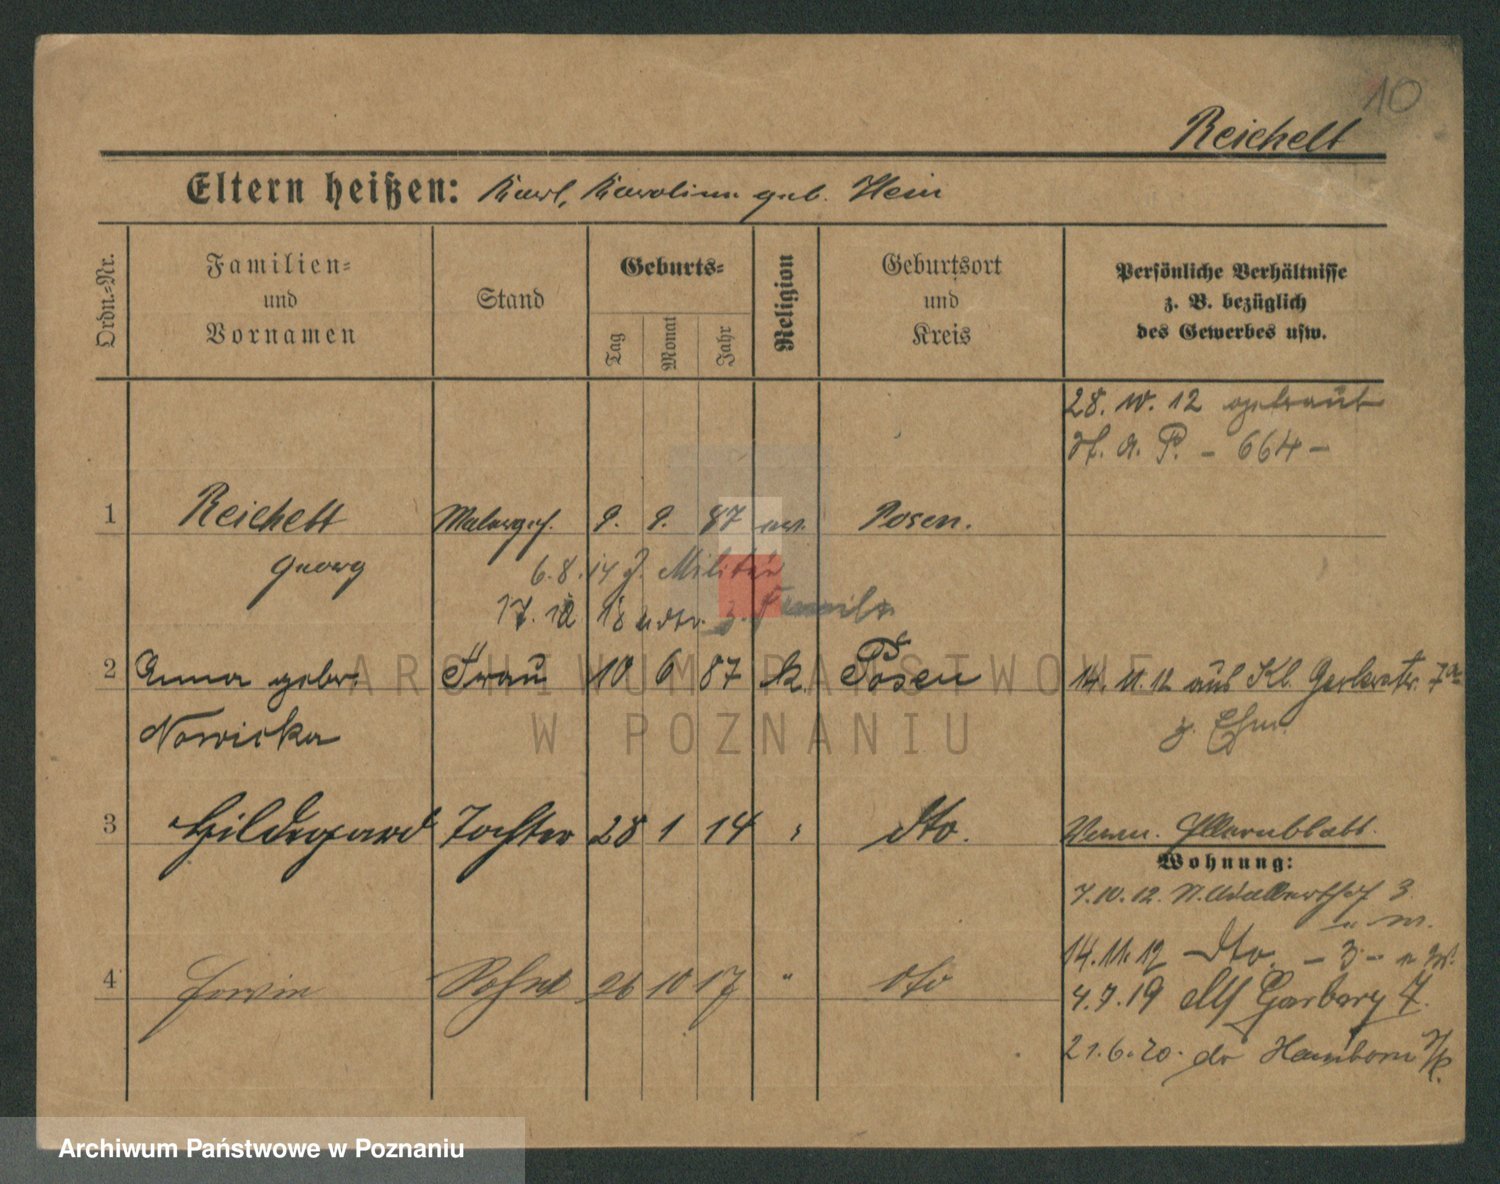 10
Reichelt
Eltern heißen: Karl, Karoline geb. Hein
Ordn.-Nr.
Familien-
und
Vornamen
Stand
Geburts-
Tag
Monat
Jahr
Religion
Geburtsort
und
Kreis
Persönliche Verhältnisse
z. B. bezüglich
des Gewerbes usw.
28. 10. 12 getraut
St. A. P. - 664 -
1 Reichelt Malergeh. 9. 9. 87 ev. Posen.
Georg
6.8.14 z. Militär
17. 12 18 z. Familie
2 Anna geb. Frau 10 6 87 k. Posen 14. 11. 12 aus Kl. Gerberstr. 7a
Nowicka
z. Ehm.
3 Hildegard Tochter 28 1 14 " dto. Verm. Elternblatt.
Wohnung:
7.10.12. 3
14.11.12 dto. - 3 -
4 Erwin Sohn 26 10 17 " dto
4.7.19 Gerberg 7.
21.6.20. Hamborn
ARCHIWUM PAŃSTWOWE
W POZNANIU
Archiwum Państwowe w Poznaniu